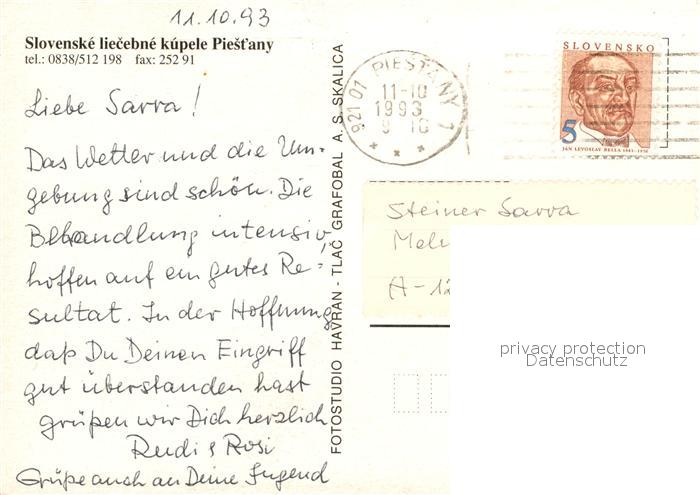 11.10.93
Slovenské liečebné kúpele Piešťany
tel.: 0838/512 198 fax: 252 91
Liebe Sarra!
Das Wetter und die Um-
gebung sind schön. Die
Behandlung intensiv,
hoffen auf ein gutes Re-
sultat. In der Hoffnung
daß Du Deinen Eingriff
gut überstanden hast
grüßen wir Dich herzlich
Rudi & Rosi
Grüße auch an Deine Jugend
FOTOSTUDIO HAVRAN - TLAČ GRAFOBAL A. S. SKALICA
921 01 PIEŠŤANY 1
11-10
1993
9-10
SLOVENSKO
5
JÁN LEVOSLAV BELLA 1843-1936
Steiner Sarra
A-12
privacy protection
Datenschutz